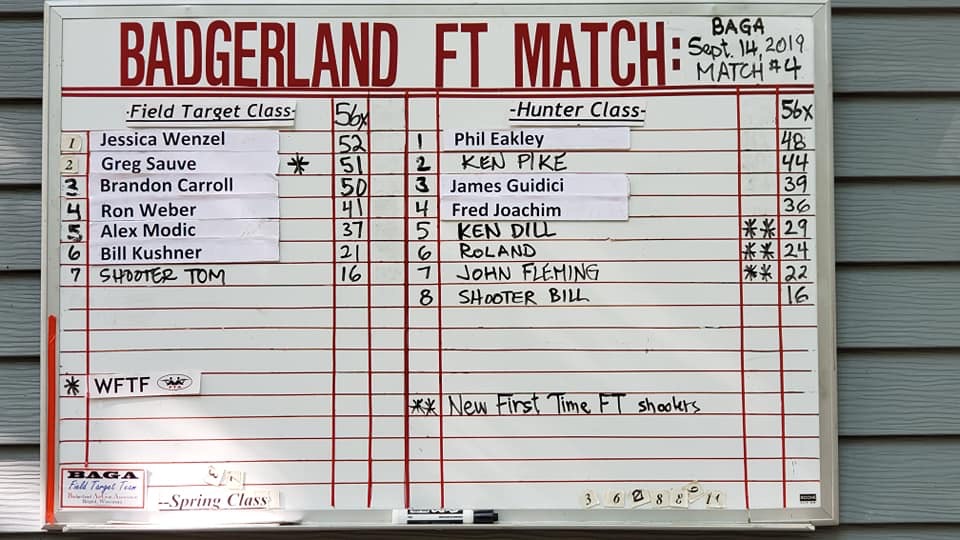 BADGERLAND FT MATCH:
BAGA
Sept. 14, 2019
MATCH #4
-Field Target Class- 56x
1 Jessica Wenzel 52
2 Greg Sauve * 51
3 Brandon Carroll 50
4 Ron Weber 41
5 Alex Modic 37
6 Bill Kushner 21
7 SHOOTER TOM 16
* WFTF
-Hunter Class- 56x
1 Phil Eakley 48
2 KEN PIKE 44
3 James Guidici 39
4 Fred Joachim 36
5 KEN DILL ** 29
6 ROLAND ** 24
7 JOHN FLEMING ** 22
8 SHOOTER BILL 16
** New First Time FT shooters
BAGA
Field Target Team
--Spring Class
3 6 2 8 8